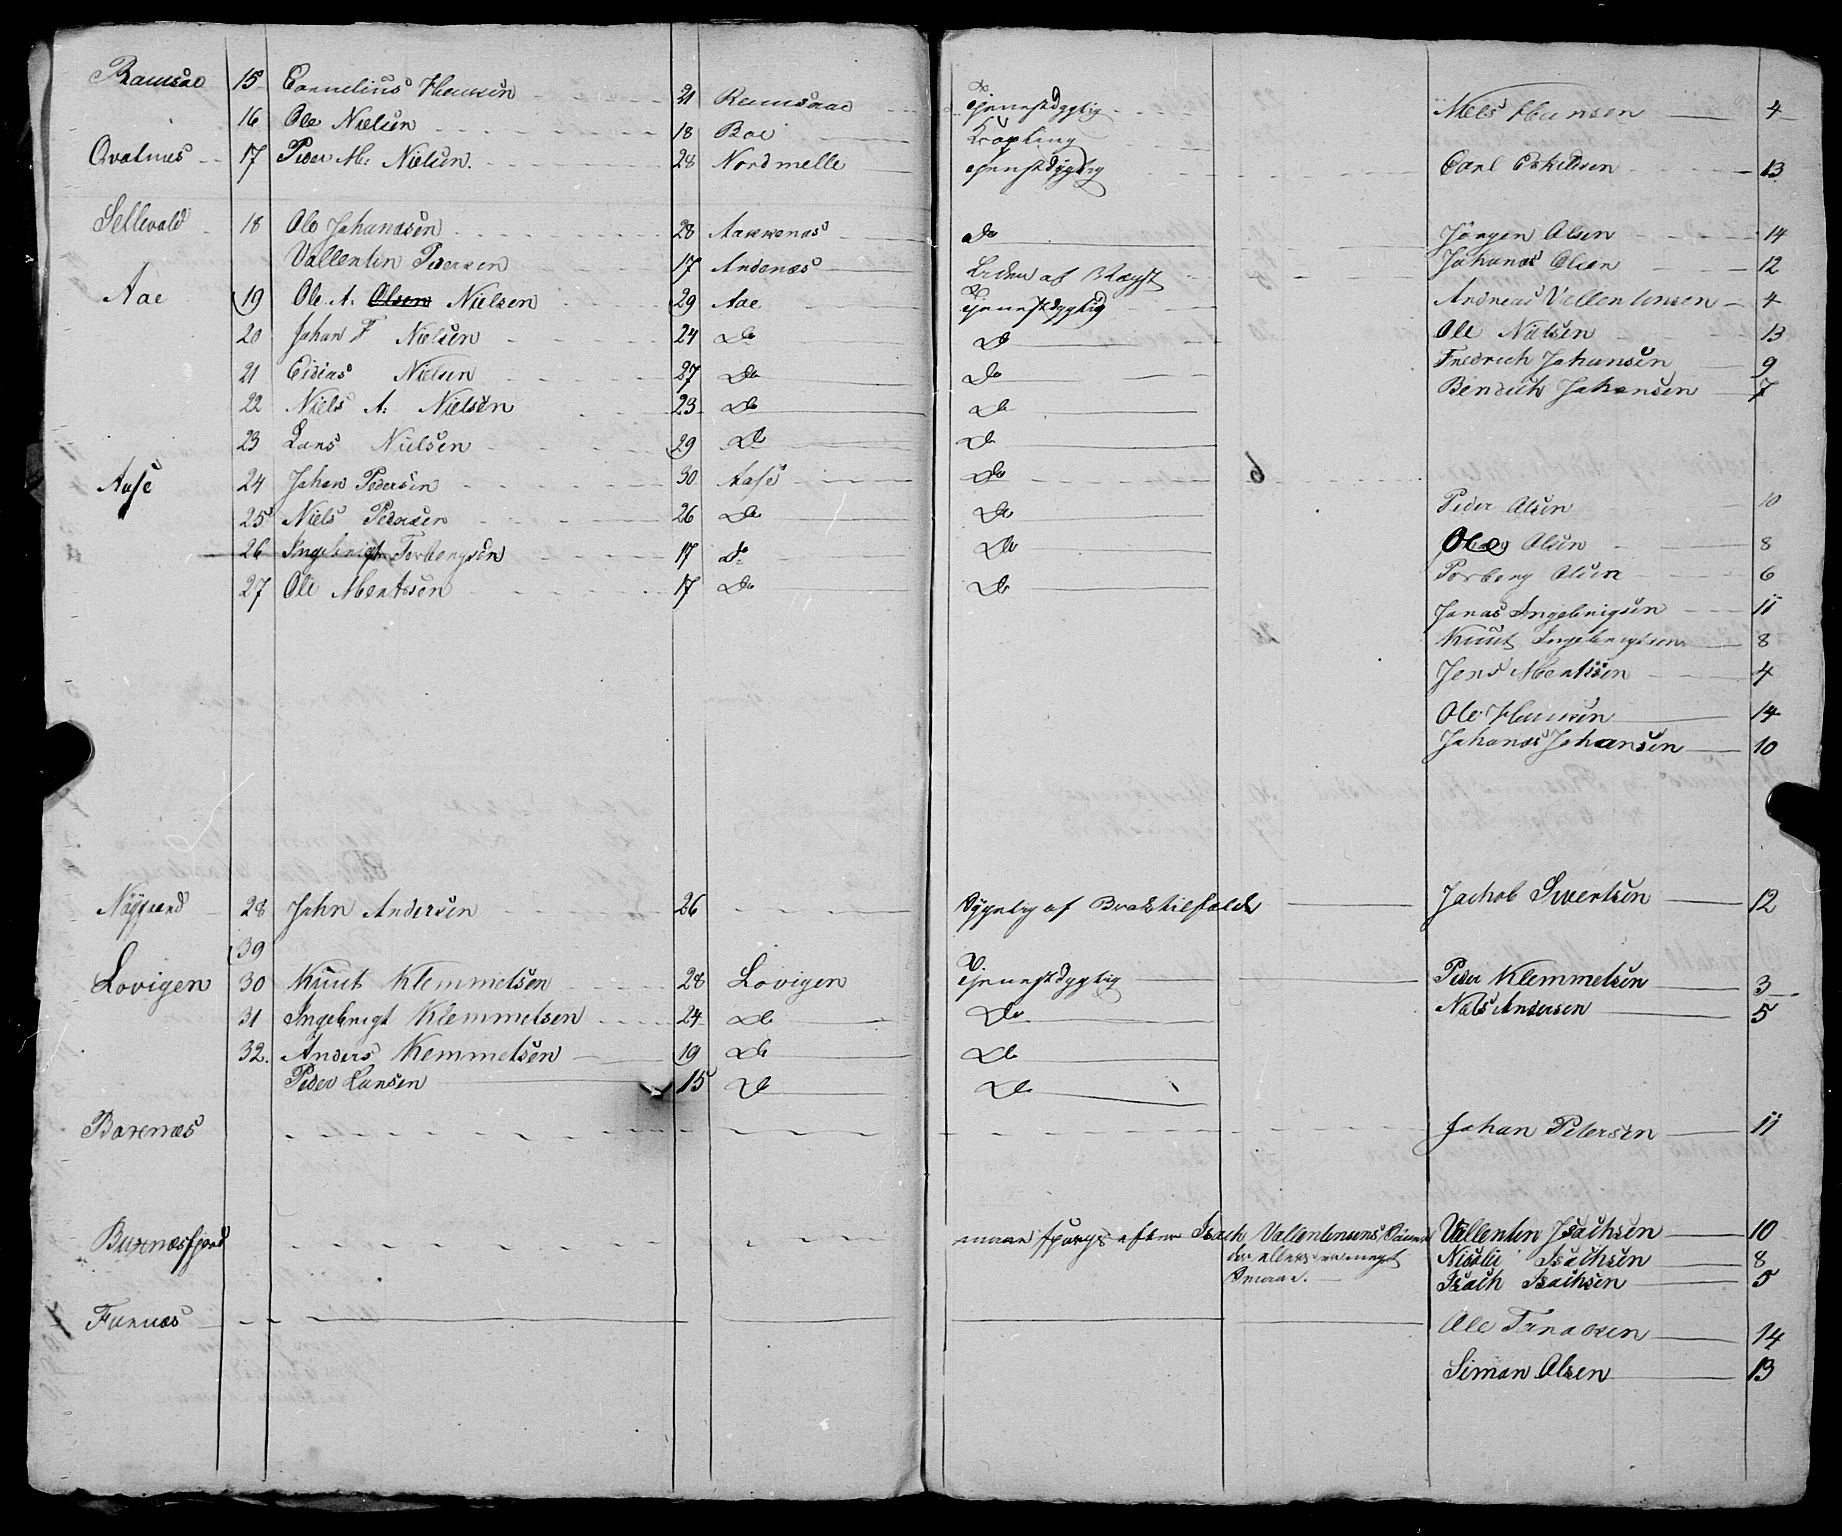 Ramsae 15 Cornelius Hansen 21 Ramsaae tjenestdygtig Niels Hansen 4
16 Ole Nielsen 18 Boe Krøpling
Qvalnæs 17 Peder M: Nielsen 28 Nordmelle tjenestdygtig Carl Eskildsen 13
Sellevold 18 Ole Johansen 28 Aarenæs Do Jørgen Olsen 14
Vallentin Pedersen 17 Andenæs Liden af Væxt Johanes Olsen 12
Aae 19 Ole A. Olsen Nielsen 29 Aae tjenestdygtig Andreas Vallentinsen 4
20 Johan F Nielsen 24 Do Do Ole Nielsen 13
21 Edias Nielsen 27 Do Do Fredrich Johansen 9
22 Niels A: Nielsen 23 Do Do Bendick Johansen 7
23 Lars Nielsen 29 Do Do
Aase 24 Johan Pedersen 30 Aase Do 6
25 Niels Pedersen 26 Do Do Peder Olsen 10
26 Ingebrigt Torbergsen 17 do Do Ole Olsen 8
27 Ole Mentsen 17 Do Do Torberg Olsen 6
Jonas Ingebrigsen 11
Knut Ingebrigtsen 8
Jens Mentsen 4
Ole Hansen 14
Johanes Johansen 10
Nøygaard 28 John Andersen 26 Sygelig af Jachob Sivertsen 12
39
Lovigen 30 Knut Klemmetsen 28 Lovigen tjenestdygtig Peder Klemmetsen 3
31 Ingebrigt Klemmetsen 24 Do Do Niels Andersen 5
32. Anders Klemmetsen 19 Do Do
Peder Larsen 15 Do Do
Boxenæs Johan Petersen 11
Buxnæsfjord maae spørges efter Isach Vallentinsens Vallentin Isachsen 10
Nicolai Isachsen 8
Isach Isachsen 5
Furnæs Ole Tanasen 14
Simon Olsen 13